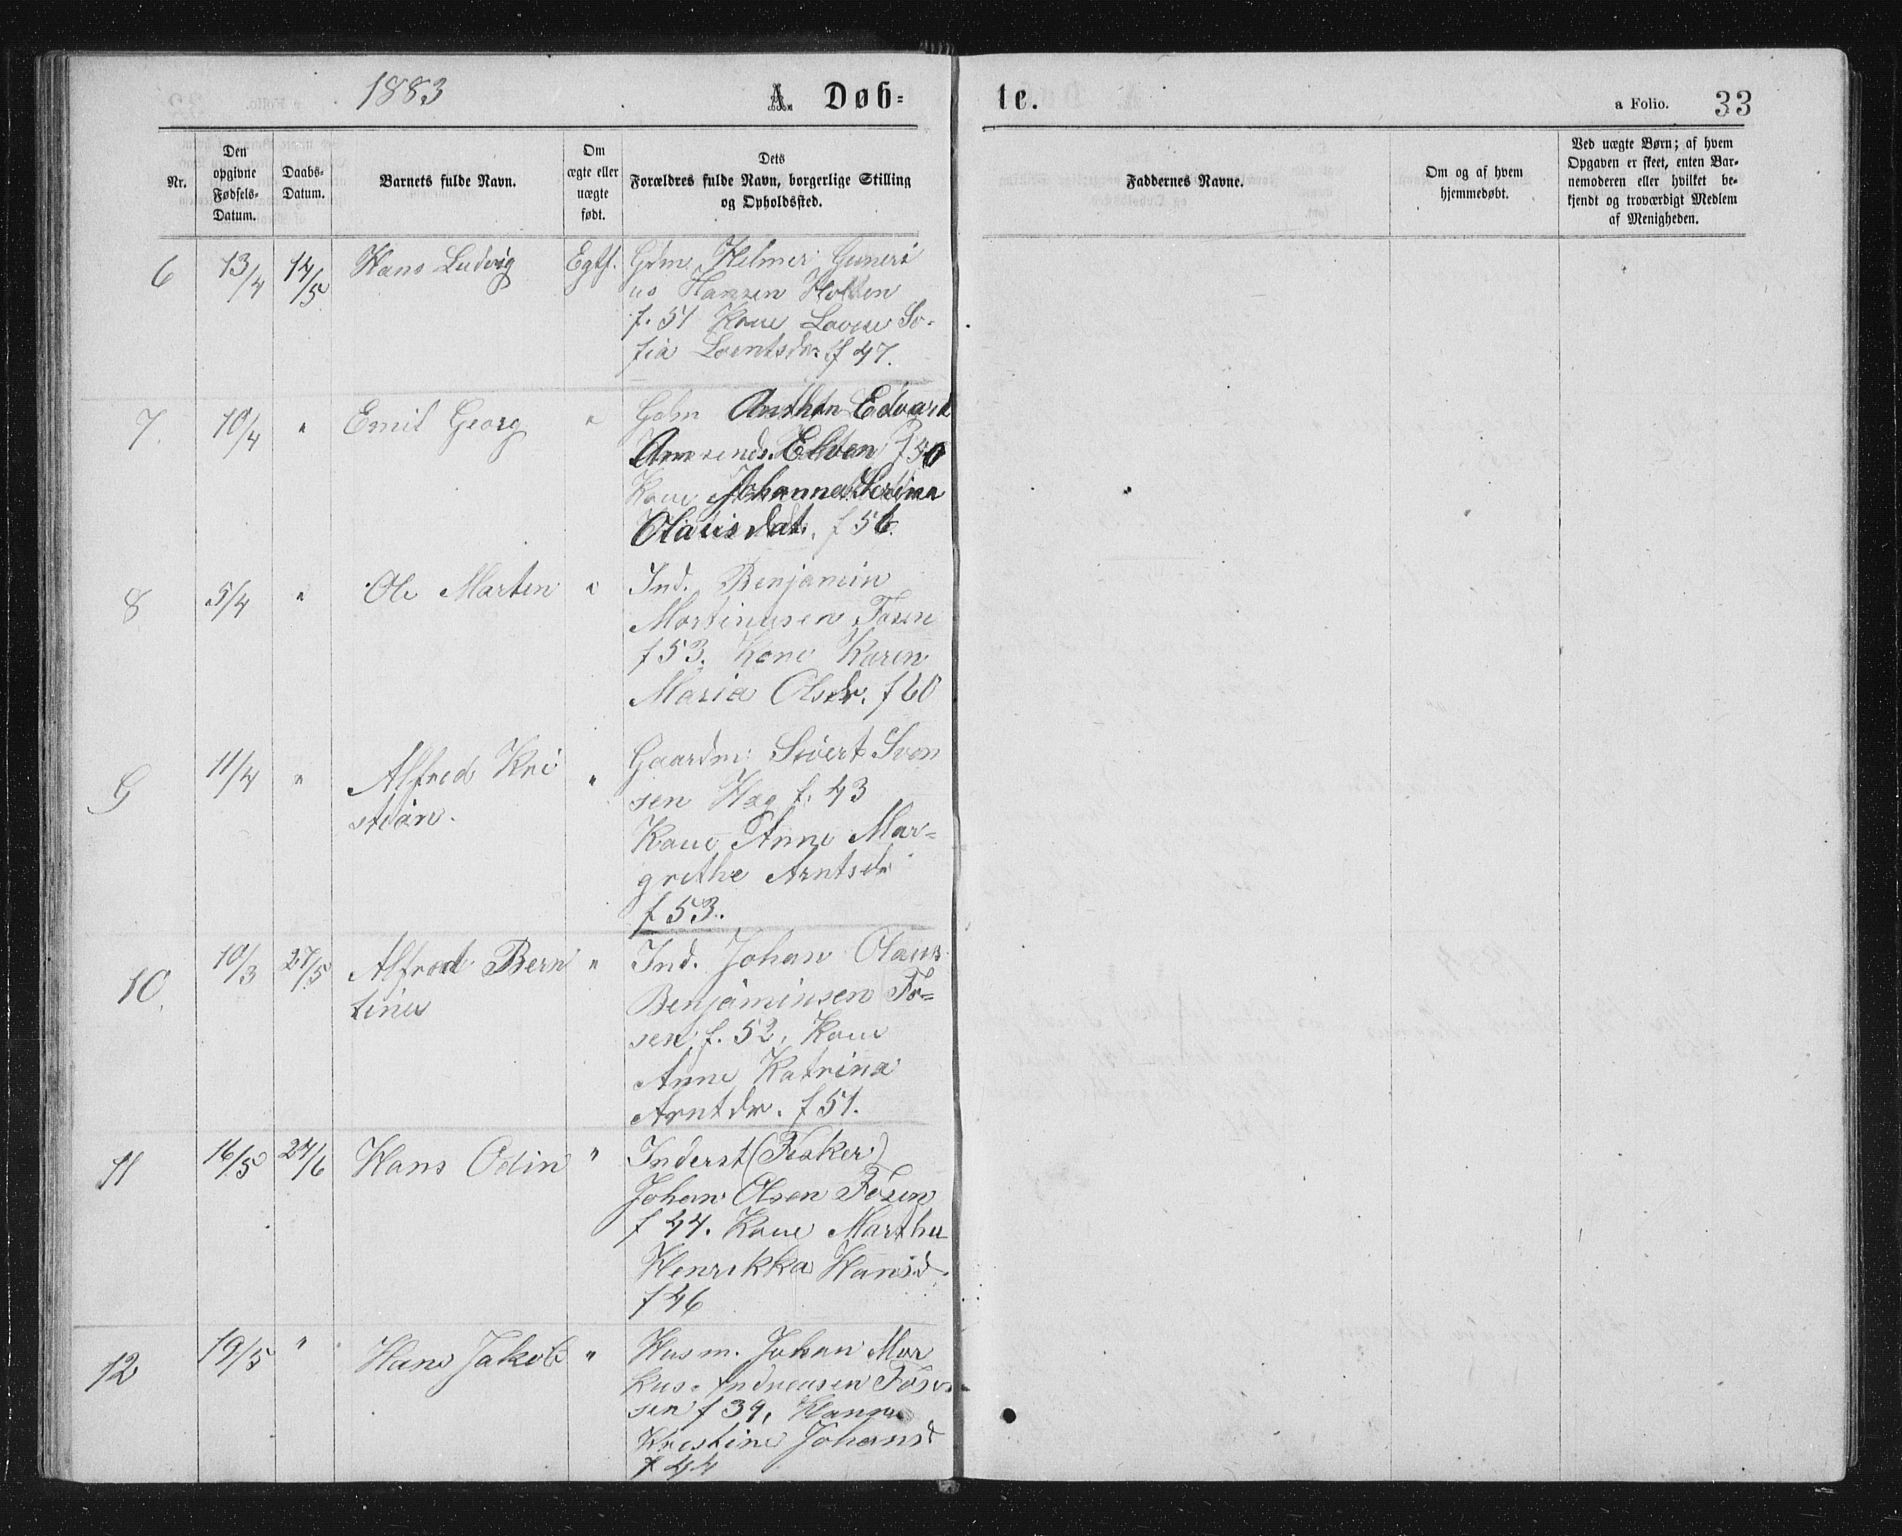 1883
A. Døb=
te.
a Folio. 33
Nr.
Den opgivne Fødsels-Datum.
Daabs-Datum.
Barnets fulde Navn.
Om ægte eller uægte født.
Dets Forældres fulde Navn, borgerlige Stilling og Opholdssted.
Faddernes Navne.
Om og af hvem hjemmedøbt.
Ved uægte Børn; af hvem Opgaven er skeet, enten Barnemoderen eller hvilket bekjendt og troværdigt Medlem af Menigheden.
6 13/4 14/5 Hans Ludvig Egtf. Gdm. Helmer Guneri
us Hansen Holten
f. 51 Kone Lovise So-
fia Lorntsdr. f 47.
7. 10/4 " Emil Georg " Gdm Anthon Edvard
Amunds. Elven f 50
Kone Johanna Serina
Olausdat. f 56.
8 5/4 " Ole Martin " Ind. Benjamin
Martinusen Fosen
f 53. Kone Karen
Maria Olsdr. f 60
9 11/4 " Alfred Kri " Gaardm: Sivert Sven
stian. sen Hag f. 43
Kone Anne Mar=
grethe Arntsdr
f 53.
10. 10/3 27/5 Alfred Bern " Ind. Johan Olaus
tinus Benjaminsen Fo=
sen f. 52, Kone
Anne Katrina
Arntdr. f 51.
11 16/5 24/6 Hans Odin " Inderst (Fisker)
Johan Olsen Fosen
f 44. Kone Martha
Henrikka Hansd.
f 46
12 19/5 " Hans Jakob " Husm. Johan Mar
kus Andreasen Fos
sen f 39, Hanna
Kristine Johansd
f 44